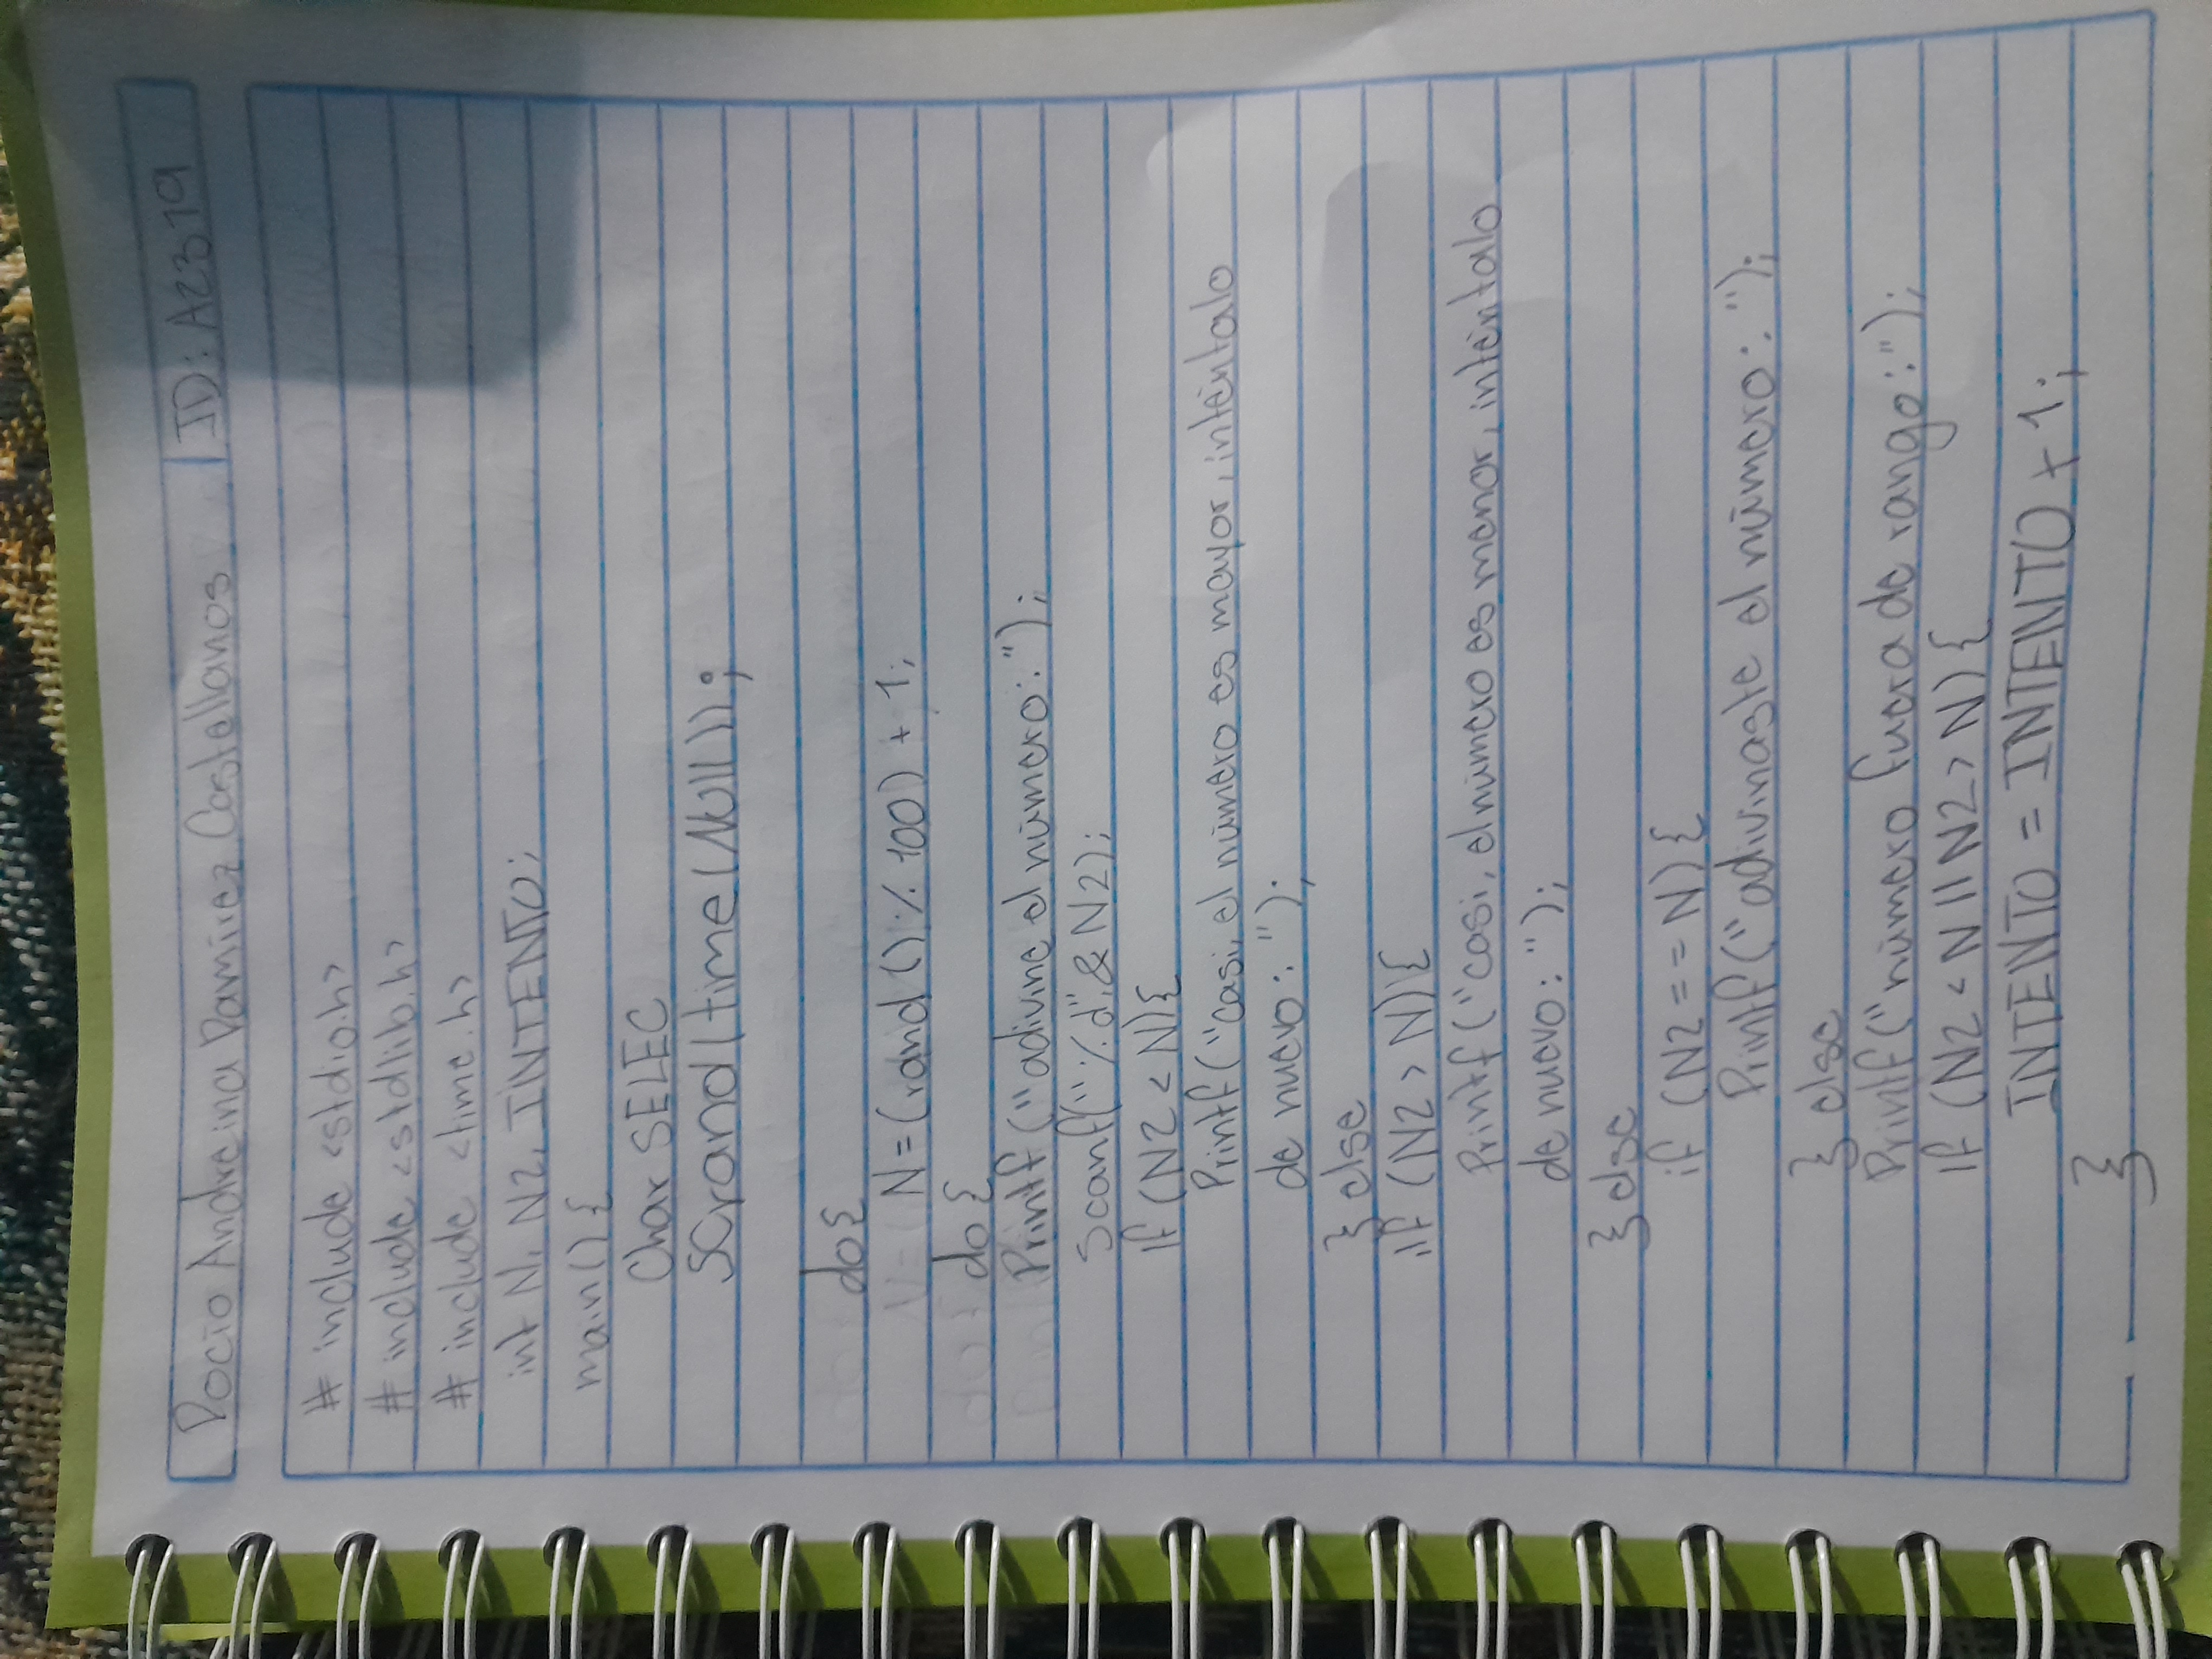 Rocío Andreina Ramirez Castellanos ID: A23719
# include <stdio.h>
# include <stdlib.h>
# include <time.h>
int N, N2, INTENTO;
main() {
Char SELEC
Scrand(time(Null));
do {
N = (rand() % 100) + 1;
do {
Printf ("adivine el número: ");
Scanf("%d", & N2);
if (N2 < N) {
Printf ("casi, el número es mayor, inténtalo
de nuevo: ");
} else
if (N2 > N) {
Printf ("casi, el número es menor, inténtalo
de nuevo: ");
} else
if (N2 == N) {
Printf ("adivinaste el número: ");
} else
Printf ("número fuera de rango: ");
if (N2 < N || N2 > N) {
INTENTO = INTENTO + 1;
}